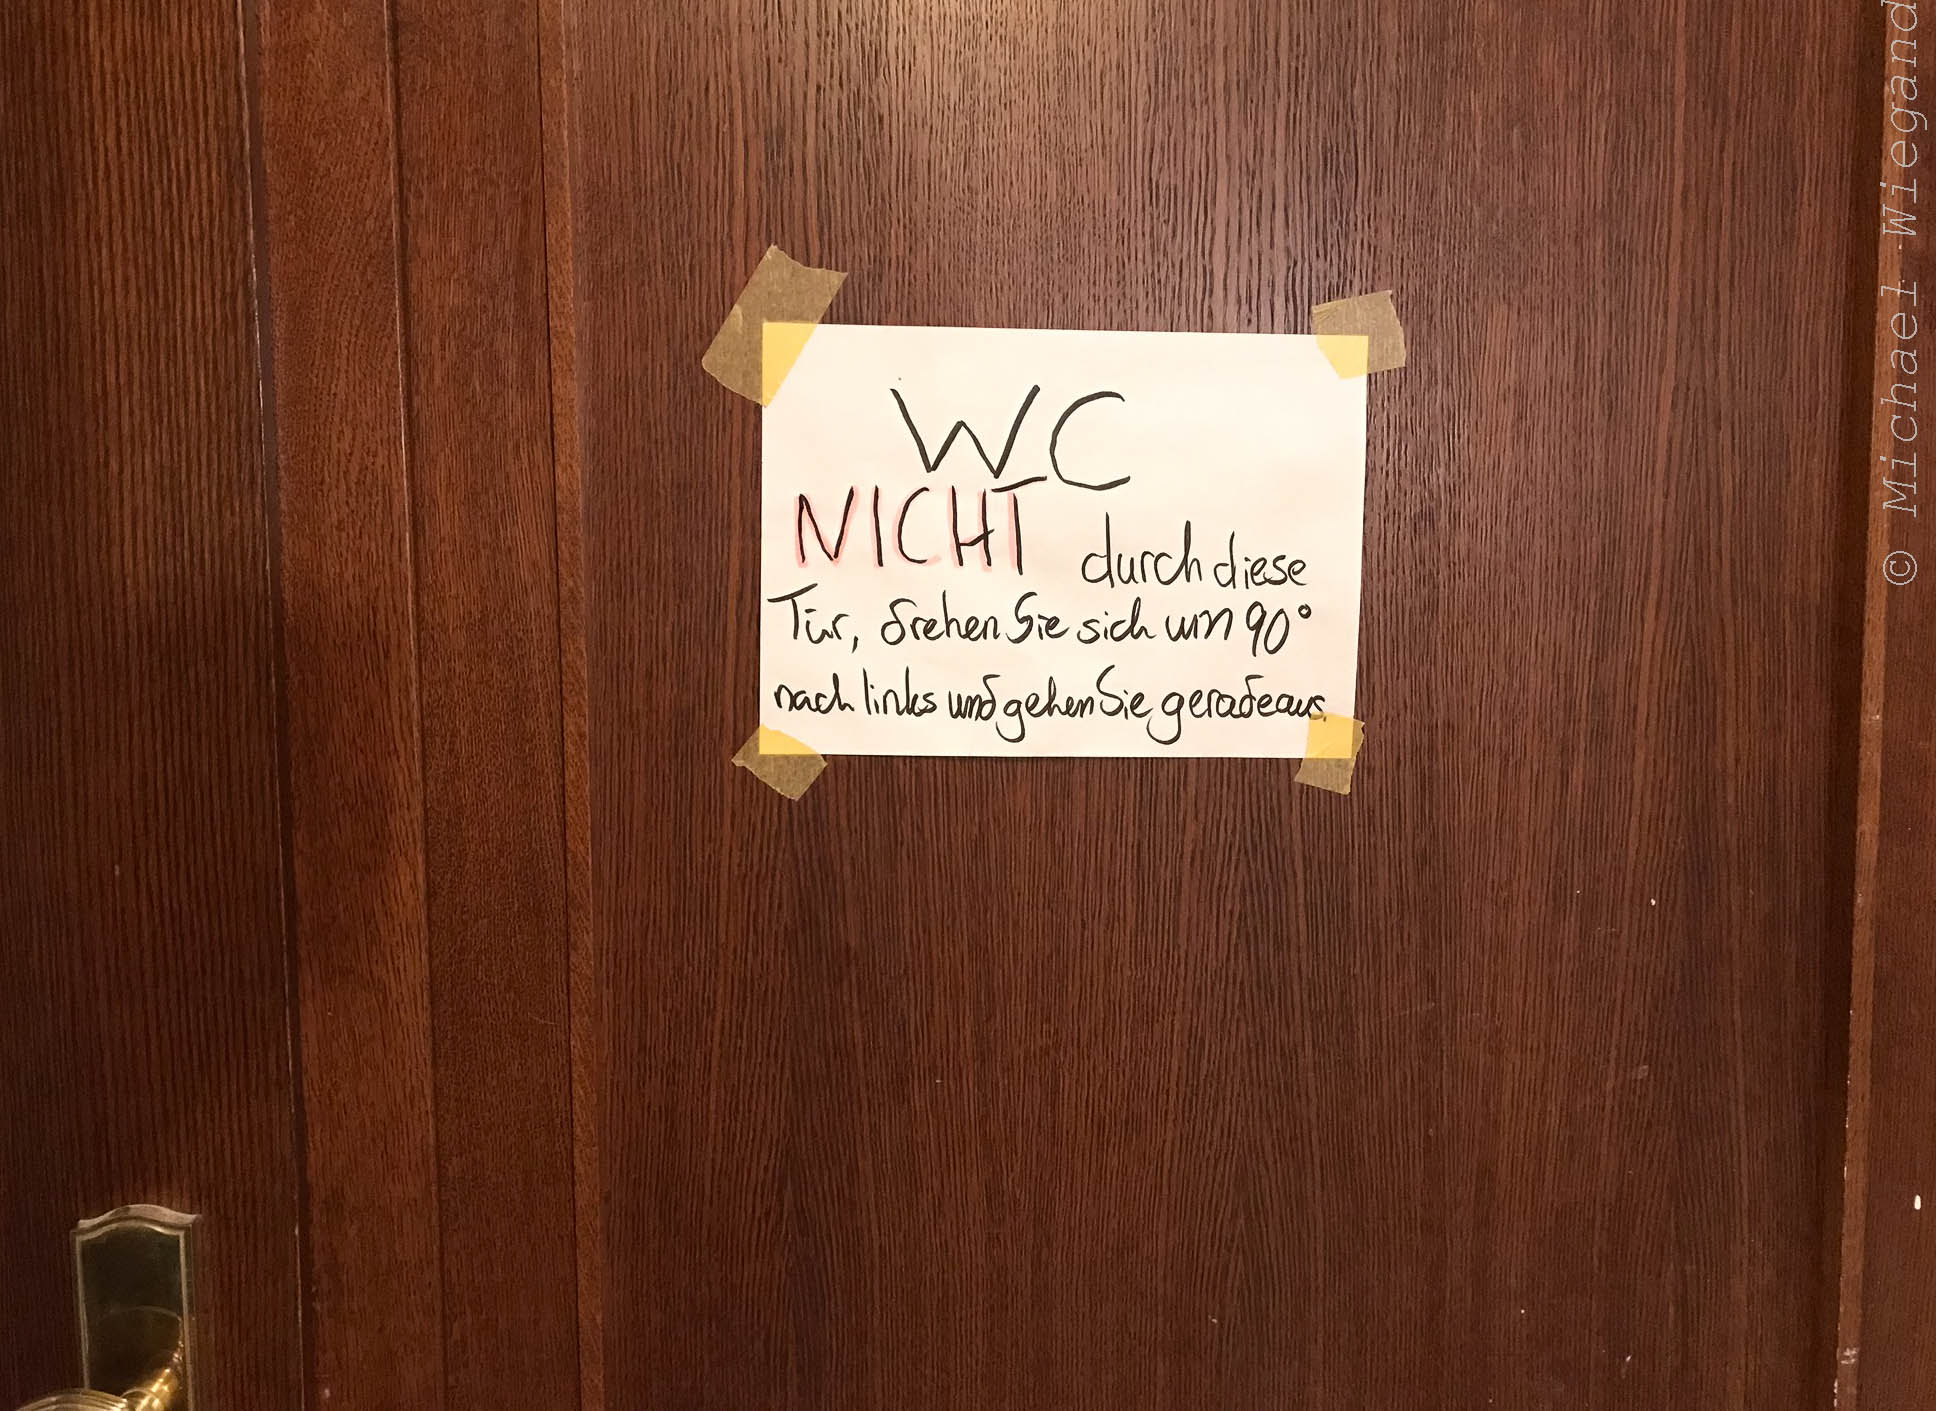 WC
NICHT durch diese
Tür, drehen Sie sich um 90°
nach links und gehen Sie geradeaus.
© Michael Wiegand